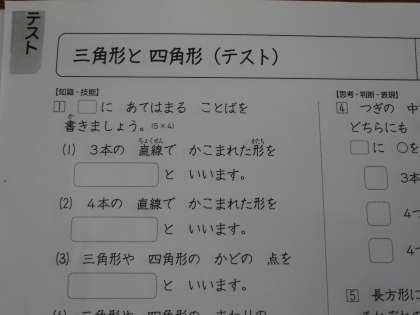 テスト
三角形と 四角形（テスト）
【知識・技能】
1 □に あてはまる ことばを
書きましょう。(5×4)
か
(1) 3本の 直線で かこまれた形を
ちょくせん
かたち
と いいます。
(2) 4本の 直線で かこまれた形を
と いいます。
(3) 三角形や 四角形の かどの 点を
と いいます。
【思考・判断・表現】
4 つぎの 中
どちらにも
□に ○を
3本
4つ
4つ
5 長方形に